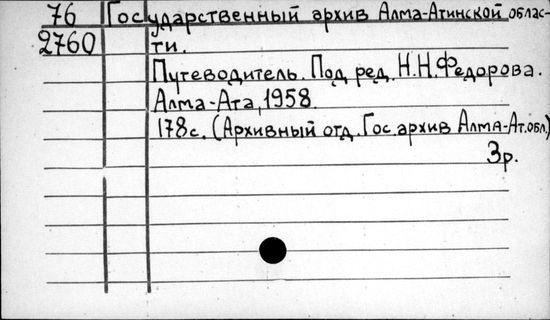 76 Государственный архив Алма-Атинской облас-
2760 ти.
Путеводитель. Под ред. Н.Н.Федорова.
Алма-Ата, 1958.
178с. (Архивный отд. Гос.архив Алма-Ат.обл.)
3р.